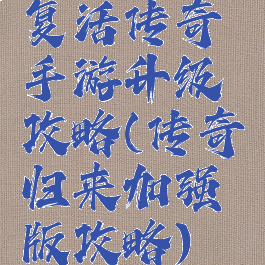 复活传奇
手游升级
攻略(传奇
归来加强
版攻略)